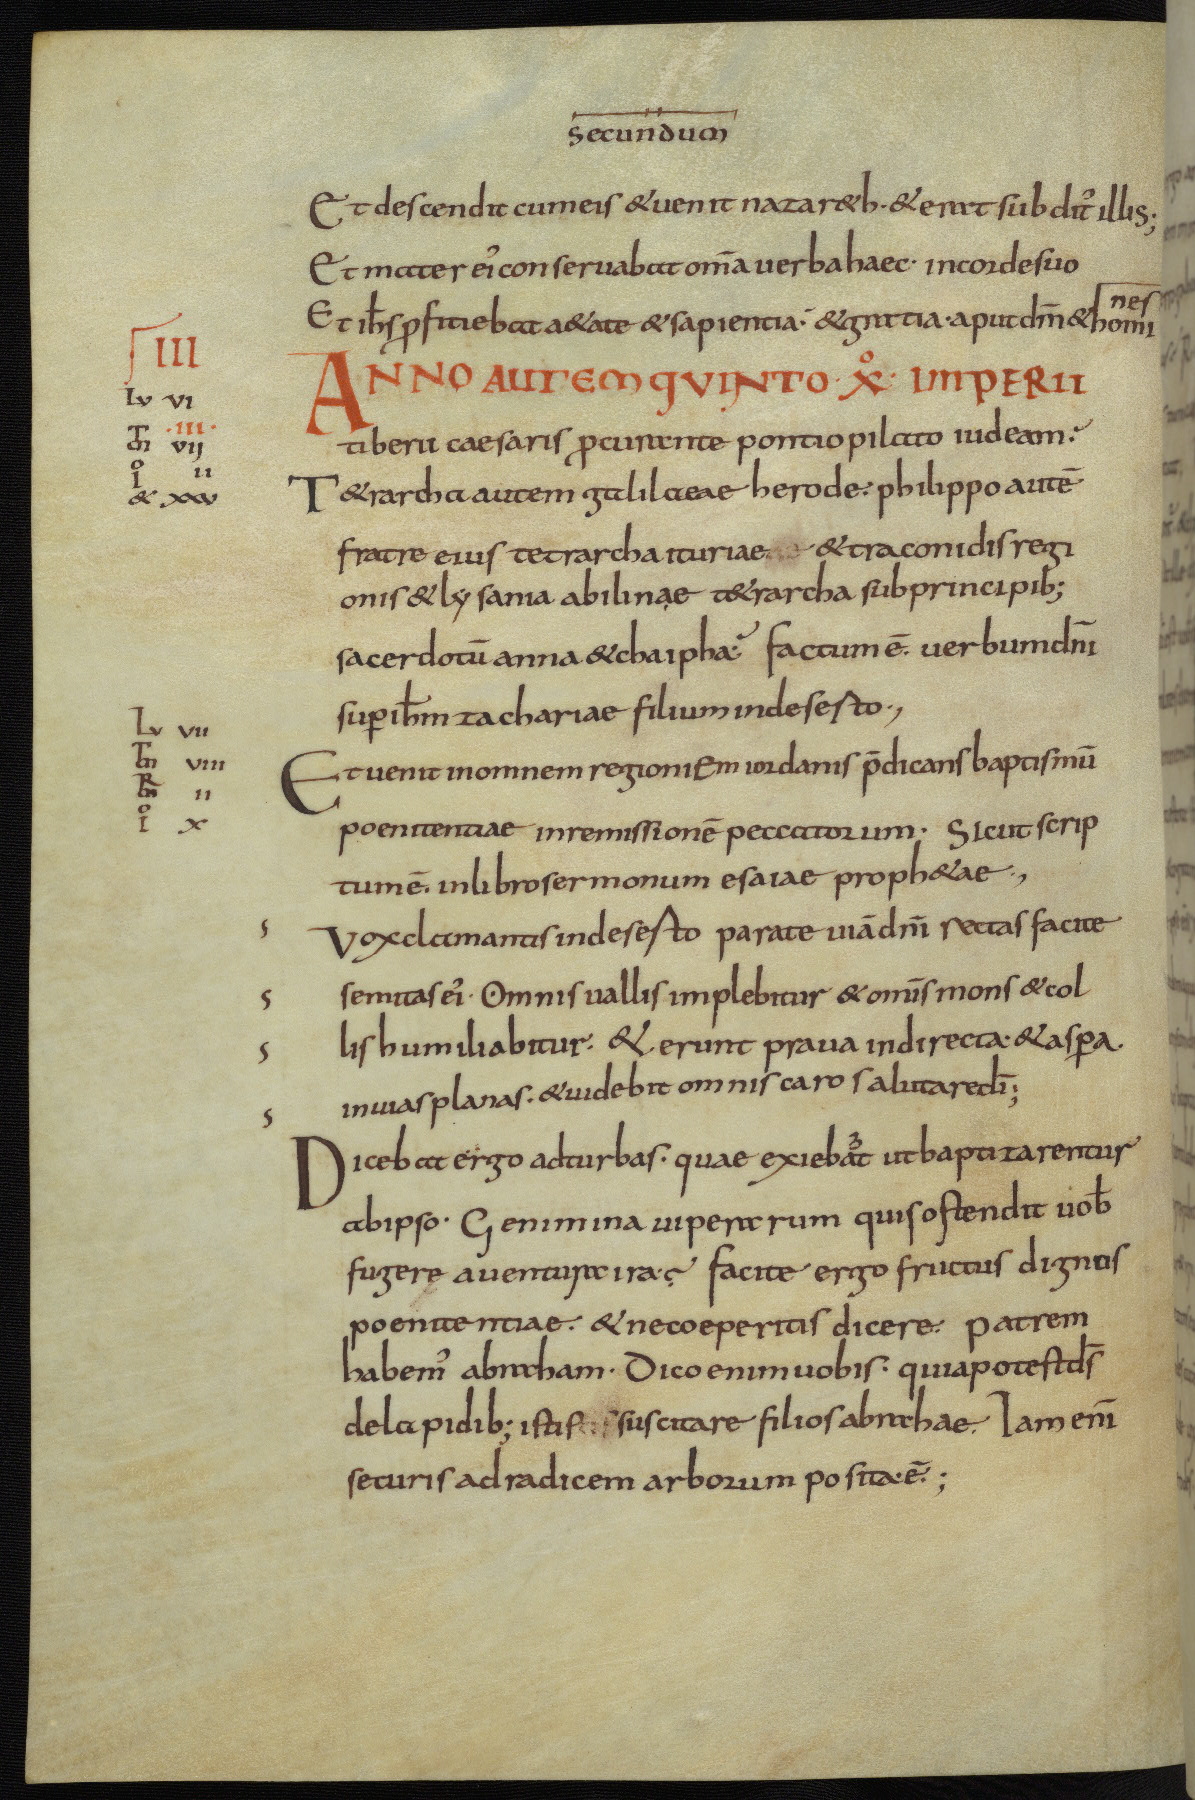 secundum
Et descendit cum eis & uenit nazar&h· & erat subditʼ illis;
Et mater eiʼ conseruabat om̄a uerba haec· in corde suo
nes
Et ihs̄ ꝓficiebat a&ate & sapientia· & gratia· aput dm̄ & homi
III
ANNO AUTEM QVINTO· X̊· IMPERII
Lv VI
tiberii caesaris ꝓcurante pontio pilato iudeam·
·III·
Th VII
T&rarcha autem galilaeae herode· philippo autē
I̊ II
& XXV
fratre eius tetrarcha ituriae & traconidis regi
onis & lysania abilinae t&rarcha sub principib;
sacerdotū anna & chaipha· factum ē· uerbum dn̄i
suꝑ ioh̄m zachariae filium in deserto·,
Lv VII
Th VIII
Et uenit in omnem regioniEm iordanis p̄dicans baptismū
R II
I̊ X
poenitentiae in remissionē peccatorum· Sicut scrip
tum ē· in libro sermonum esaiae proph&ae·,
s Vox clamantis in deserto parate uiā dn̄i rectas facite
s semitas eiʼ· Omnis uallis implebitur & omīs mons & col
s lis humiliabitur· & erunt praua in directa· & aspera
s in uias planas· & uidebit omnis caro salutare dī;
Dicebat ergo ad turbas· quae exiebāt ut baptizarentur
ab ipso· Genimina uiperarum quis ostendit uob̄
fugere a uentura ira· facite ergo fructus dignos
poenitentiae· & ne coeperitis dicere· patrem
habemʼ abraham· Dico enim uobis· quia potest ds̄
de lapidib; istis suscitare filios abrahae· Iam enī
securis ad radicem arborum posita· ē·;